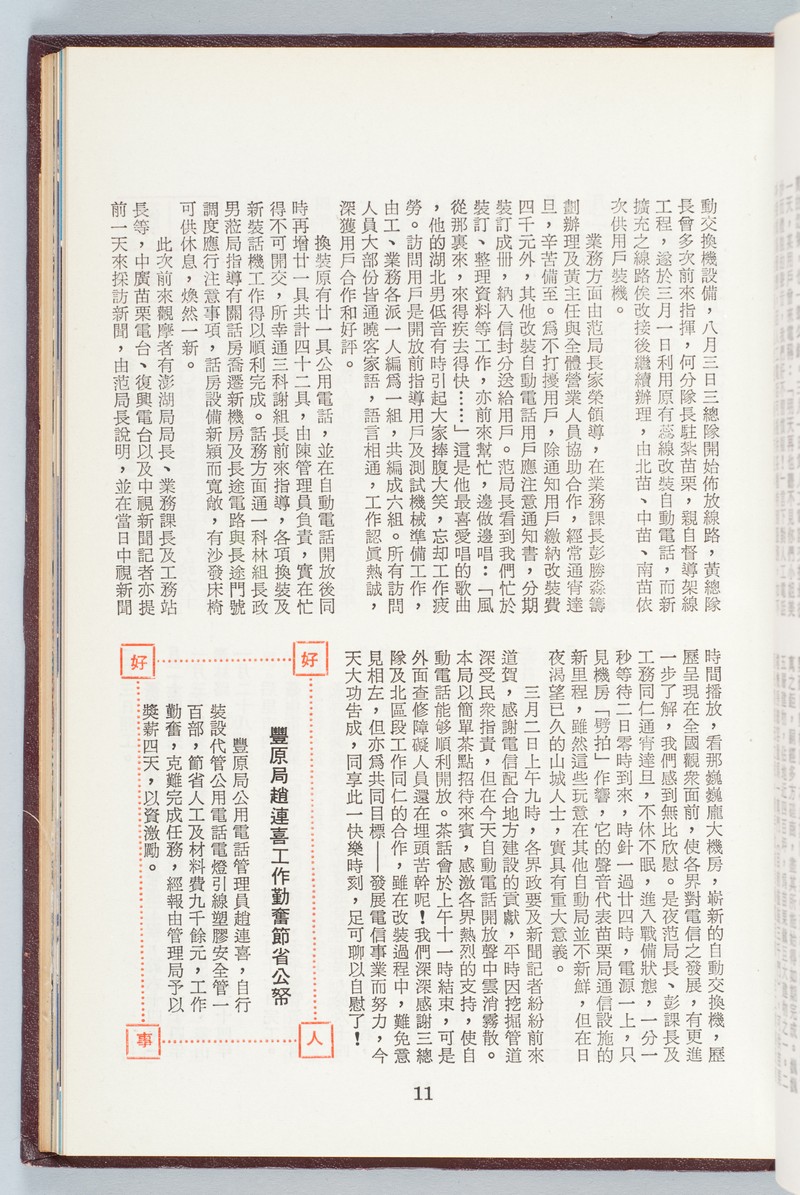 動交換機設備，八月三日三總隊開始佈放線路，黃總隊
長曾多次前來指揮，何分隊長駐紮苗栗，親自督導架線
工程，遂於三月一日利用原有蕊線改裝自動電話，而新
擴充之線路俟改接後繼續辦理，由北苗、中苗、南苗依
次供用戶裝機。
業務方面由范局長家榮領導，在業務課長彭勝淼籌
劃辦理及黃主任與全體營業人員協助合作，經常通宵達
旦，辛苦備至。為不打擾用戶，除通知用戶繳納改裝費
四千元外，其他改裝自動電話用戶應注意通知書，分期
裝訂成冊，納入信封分送給用戶。范局長看到我們忙於
裝訂、整理資料等工作，亦前來幫忙，邊做邊唱：「風
從那裏來，來得疾去得快……」這是他最喜愛唱的歌曲
，他的湖北男低音有時引起大家捧腹大笑，忘却工作疲
勞。訪問用戶是開放前指導用戶及測試機械準備工作，
由工、業務各派一人編為一組，共編成六組。所有訪問
人員大部份皆通曉客家語，語言相通，工作認眞熱誠，
深獲用戶合作和好評。
換裝原有廿一具公用電話，並在自動電話開放後同
時再增廿一具共計四十二具，由陳管理員負責，實在忙
得不可開交，所幸通三科謝組長前來指導，各項換裝及
新裝話機工作得以順利完成。話務方面通一科林組長政
男蒞局指導有關話房喬遷新機房及長途電路與長途門號
調度應行注意事項，話房設備新穎而寬敞，有沙發床椅
可供休息，煥然一新。
此次前來觀摩者有澎湖局局長、業務課長及工務站
長等，中廣苗栗電台、復興電台以及中視新聞記者亦提
前一天來採訪新聞，由范局長說明，並在當日中視新聞
時間播放，看那巍巍龐大機房，嶄新的自動交換機，歷
歷呈現在全國觀衆面前，使各界對電信之發展，有更進
一步了解，我們感到無比欣慰。是夜范局長、彭課長及
工務同仁通宵達旦，不休不眠，進入戰備狀態，一分一
秒等待二日零時到來，時針一過廿四時，電源一上，只
見機房「劈拍」作響，它的聲音代表苗栗局通信設施的
新里程，雖然這些玩意在其他自動局並不新鮮，但在日
夜渴望已久的山城人士，實具有重大意義。
三月二日上午九時，各界政要及新聞記者紛紛前來
道賀，感謝電信配合地方建設的貢獻，平時因挖掘管道
深受民衆指責，但在今天自動電話開放聲中雲消霧散。
本局以簡單茶點招待來賓，感激各界熱烈的支持，使自
動電話能够順利開放。茶話會於上午十一時結束，可是
外面查修障礙人員還在埋頭苦幹呢！我們深深感謝三總
隊及北區段工作同仁的合作，雖在改裝過程中，難免意
見相左，但亦為共同目標——發展電信事業而努力，今
天大功告成，同享此一快樂時刻，足可聊以自慰了！
好
人
好
事
豐原局趙連喜工作勤奮節省公帑
豐原局公用電話管理員趙連喜，自行
裝設代管公用電話電燈引線塑膠安全管一
百部，節省人工及材料費九千餘元，工作
勤奮，克難完成任務，經報由管理局予以
獎薪四天，以資激勵。
11